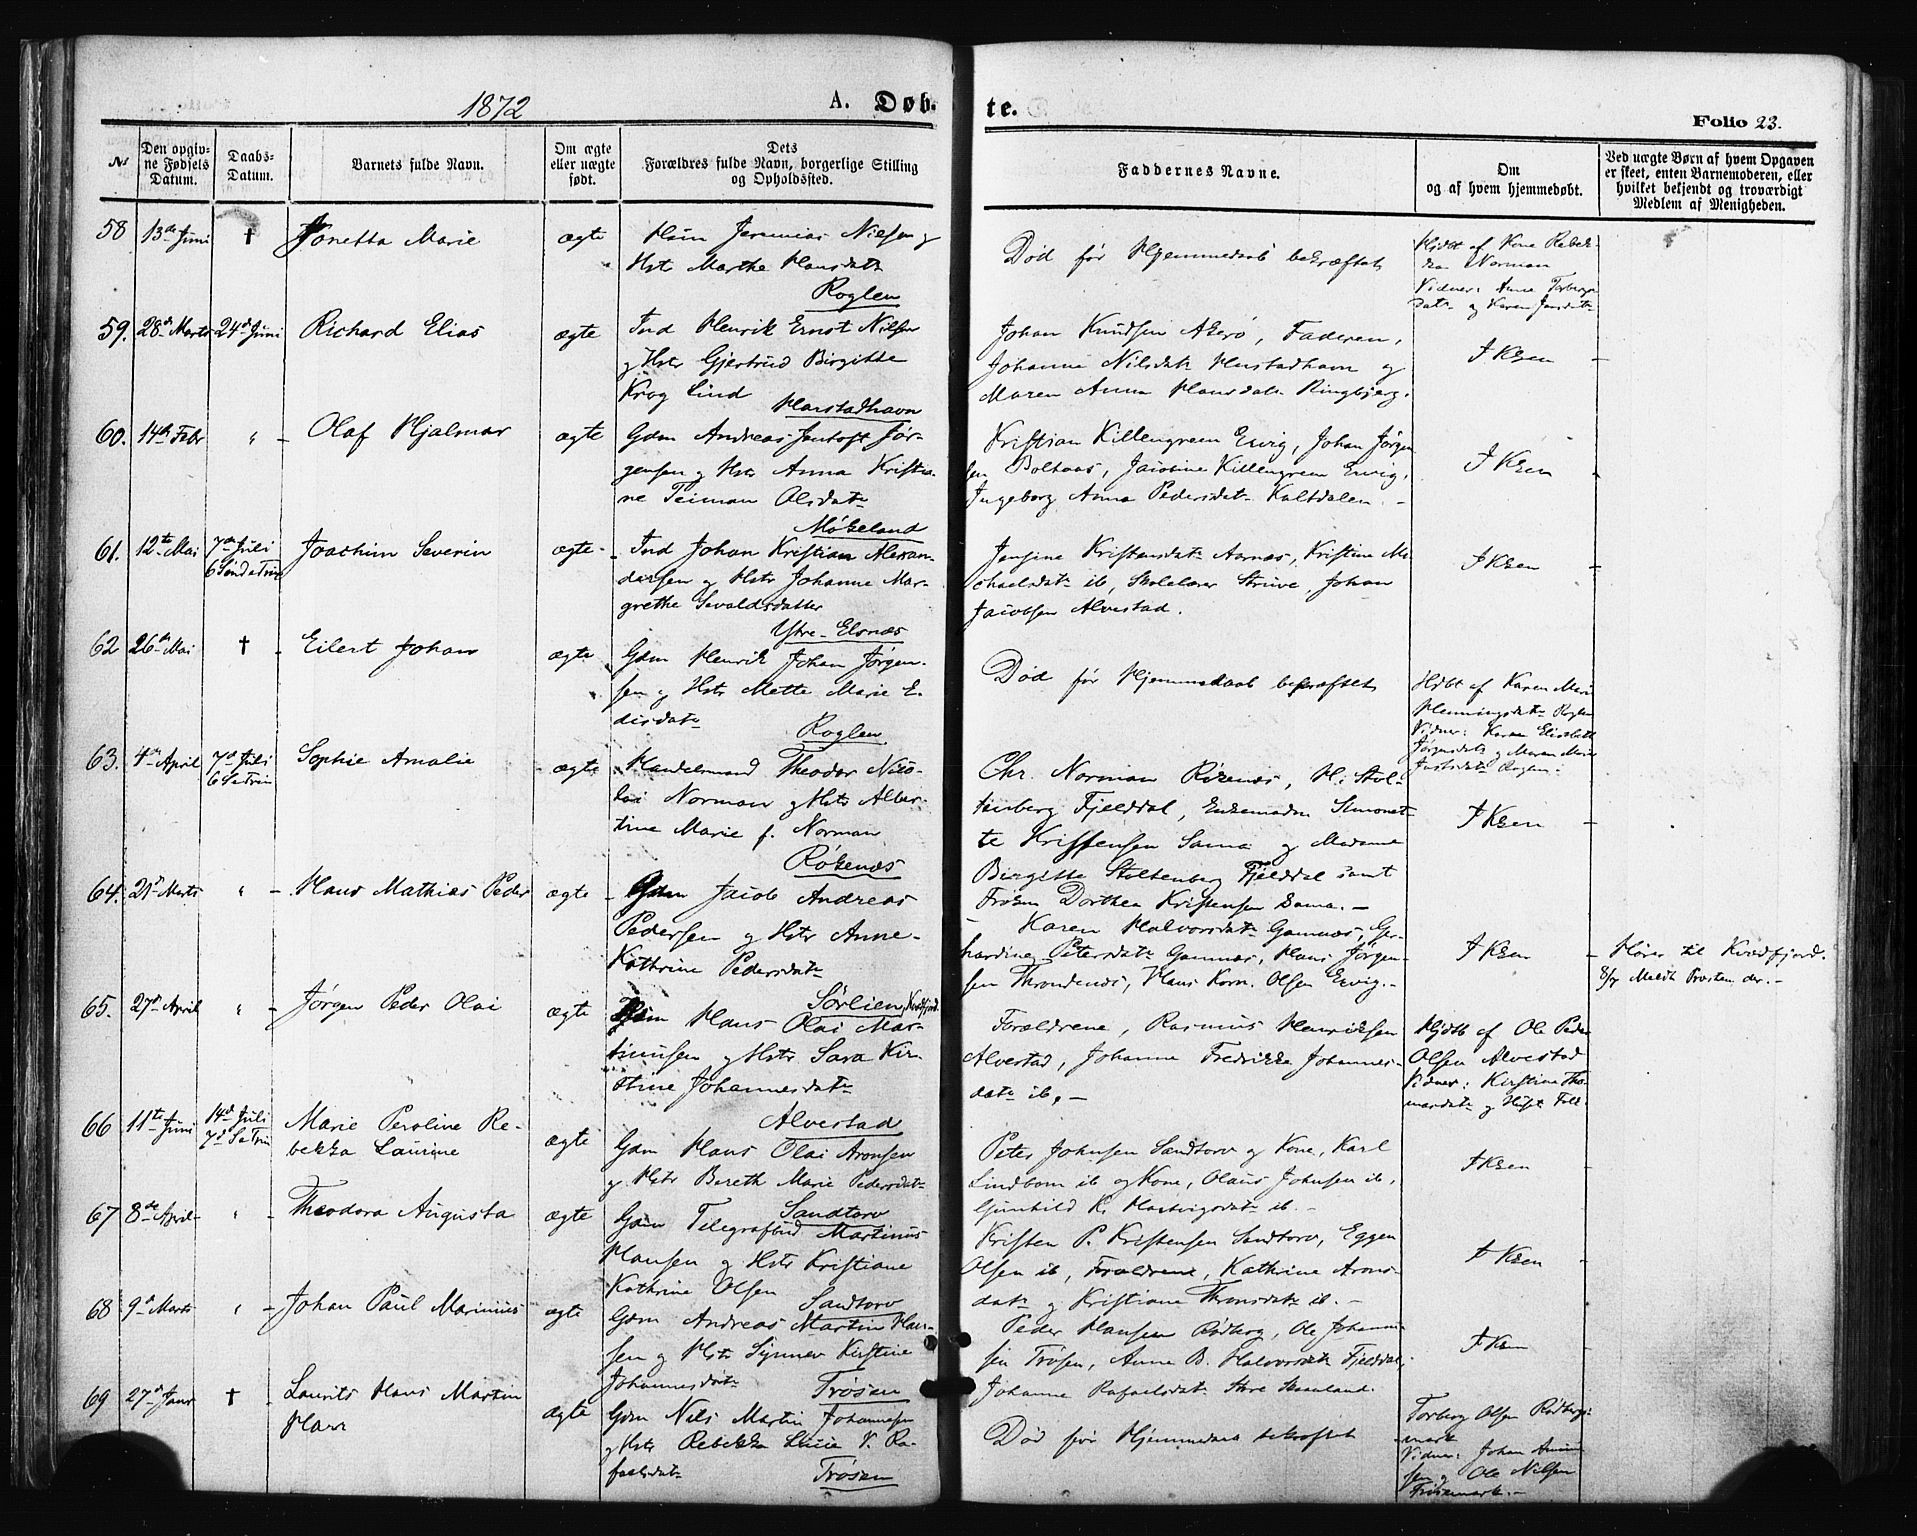 1872
A. Døb-
te.
Folio 23.
No
Den opgiv-
ne Fødsels
Datum.
Daabs-
Datum.
Barnets fulde Navn.
Om ægte
eller uægte
født.
Dets
Forældres fulde Navn, borgerlige Stilling
og Opholdssted.
Faddernes Navne.
Om
og af hvem hjemmedøbt.
Ved uægte Børn af hvem Opgaven
er skeet, enten Barnemoderen, eller
hvilket bekjendt og troværdigt
Medlem af Menigheden.
58 13de Juni † Jonetta Marie ægte
Jeremias Nielsen og
Hstr Marthe Hansdatr
Roglen
Død før Hjemmedaab bekræftet
Hjdbt af Kone Rebek-
ka Norman
Vidner: Anne Torbergs
datr og Karen Jansdatr
59. 28de Marts 24de Juni Richard Elias ægte
Ind Henrik Ernst Nilsen
og Hstr Gjertrud Birgitte
Krog Lind
Harstadhavn
Johan Knudsen Akerø, Faderen,
Johanne Nilsdatr Harstadhavn og
Maren Anna Hansdatr Ringbjerg.
I Ksen
60. 14de Febr " Olaf Hjalmar ægte
Gdm Andreas Jentoft Jør-
gensen og Hstr Anna Kristia-
ne Teiman Olsdatr
Møkeland
Kristian Killengreen Ervig, Johan Jørgen
sen Boltaas, Jacobine Killengreen Ervig,
Ingeborg Anna Pedersdatr Kaltdalen.
I Ksen
61. 12te Mai 7de Juli
6 Sønd e Trin
Joachim Severin ægte
Ind Johan Kristian Alexan-
dersen og Hstr Johanne Mar-
grethe Sevaldsdatter
Ytre-Elsnæs
Jensine Kristensdatr Aarnæs, Kristine Mi-
chaelsdatr ib, Skolelærer Struve, Johan
Jacobsen Alvestad.
I Ksen
62 26de Mai † Eilert Johan ægte
Gdm Henrik Johan Jørgen-
sen og Hstr Mette Marie E-
disdatr
Roglen
Død før Hjemmedaab bekræftet
Hdbt af Karen Marie
Henningsdatr Roglen
Vidner: Karen Elisabeth
Jørgensdatr og Maren Marie
Justsdatr Roglen.
63. 4de April 7de Juli
6 S e Trin
Sophie Amalie ægte
Handelsmand Theodor Nico-
lai Norman og Hstr Alber-
tine Marie f. Norman
Røkenæs
Chr. Norman Røkenæs, H. Stol-
tenberg Fjelddal, Enkemadm Simonet-
te Kristensen Sama og Madame
Birgitte Stoltenberg Fjelddal samt
Frøken Dorthea Kristensen Sama.
I Ksen
64. 21de Marts " Hans Mathias Peder ægte
Gdm Jacob Andreas
Pedersen og Hstr Anne
Kathrine Pedersdatr
Sørlien, Kvædfjord
Karen Halvorsdatr Gamnæs, Ger-
hardine Petersdatr Gamnæs, Hans Jørgen-
sen Throndenæs, Hans Korn. Olsen Ervig.
I Ksen
Hører til Kvædfjord.
8/7 Meldt Provsten der.
65. 27de April " Jørgen Peder Olai ægte
Hans Olai Mar-
tinusen og Hstr Sara Kir-
stine Johannesdatr
Alvestad
Forældrene, Rasmus Henriksen
Alvestad, Johanne Fredrikke Johannes-
datr ib.
Hjdbt af Ole Peder
Olsen Alvestad
Vidner: Kirstine Tho-
masdatr og
66 11te Juni 14de Juli
7de S e Trin
Marie Peroline Re-
bekka Laurine
ægte
Gdm Hans Olai Aronsen
og Hstr Bereth Marie Pedersdatr
Sandtorv
Peter Johnsen Sandtorv og Kone, Karl
Lindbom ib og Kone, Olaus Johnsen ib,
Gunhild K. Hartvigsdatr ib.
I Ksen
67 8de April " Theodora Augusta ægte
Gdm Telegrafbud Martinus
Hansen og Hstr Kristiane
Kathrine Olsen
Sandtorv
Kristen P. Kristensen Sandtorv, Eggen
Olsen ib, Forældrene, Kathrine Arons-
datr og Kristiane Thronsdatr ib.
I Ksen
68 9de Marts " Johan Paul Marinius ægte
Gdm Andreas Martin Han-
sen og Hstr Synnev Kirstine
Johannesdatr
Trøsen
Peder Hansen Rødberg, Ole Johanne-
sen Trøsen, Anne B. Halvorsdatr Fjelddal,
Johanne Rafaelsdatr
I Ksen
69 27de Janr † Laurits Hans Martin
Harr
ægte
Gdm Nils Martin Johannesen
og Hstr Rebekka Lucie V. Ra-
faelsdatr
Trøsen
Død før Hjemmedaab bekræftet
Torberg Olsen Rødbergs-
mark
Vidner: Johan
sen og Ole Nilsen